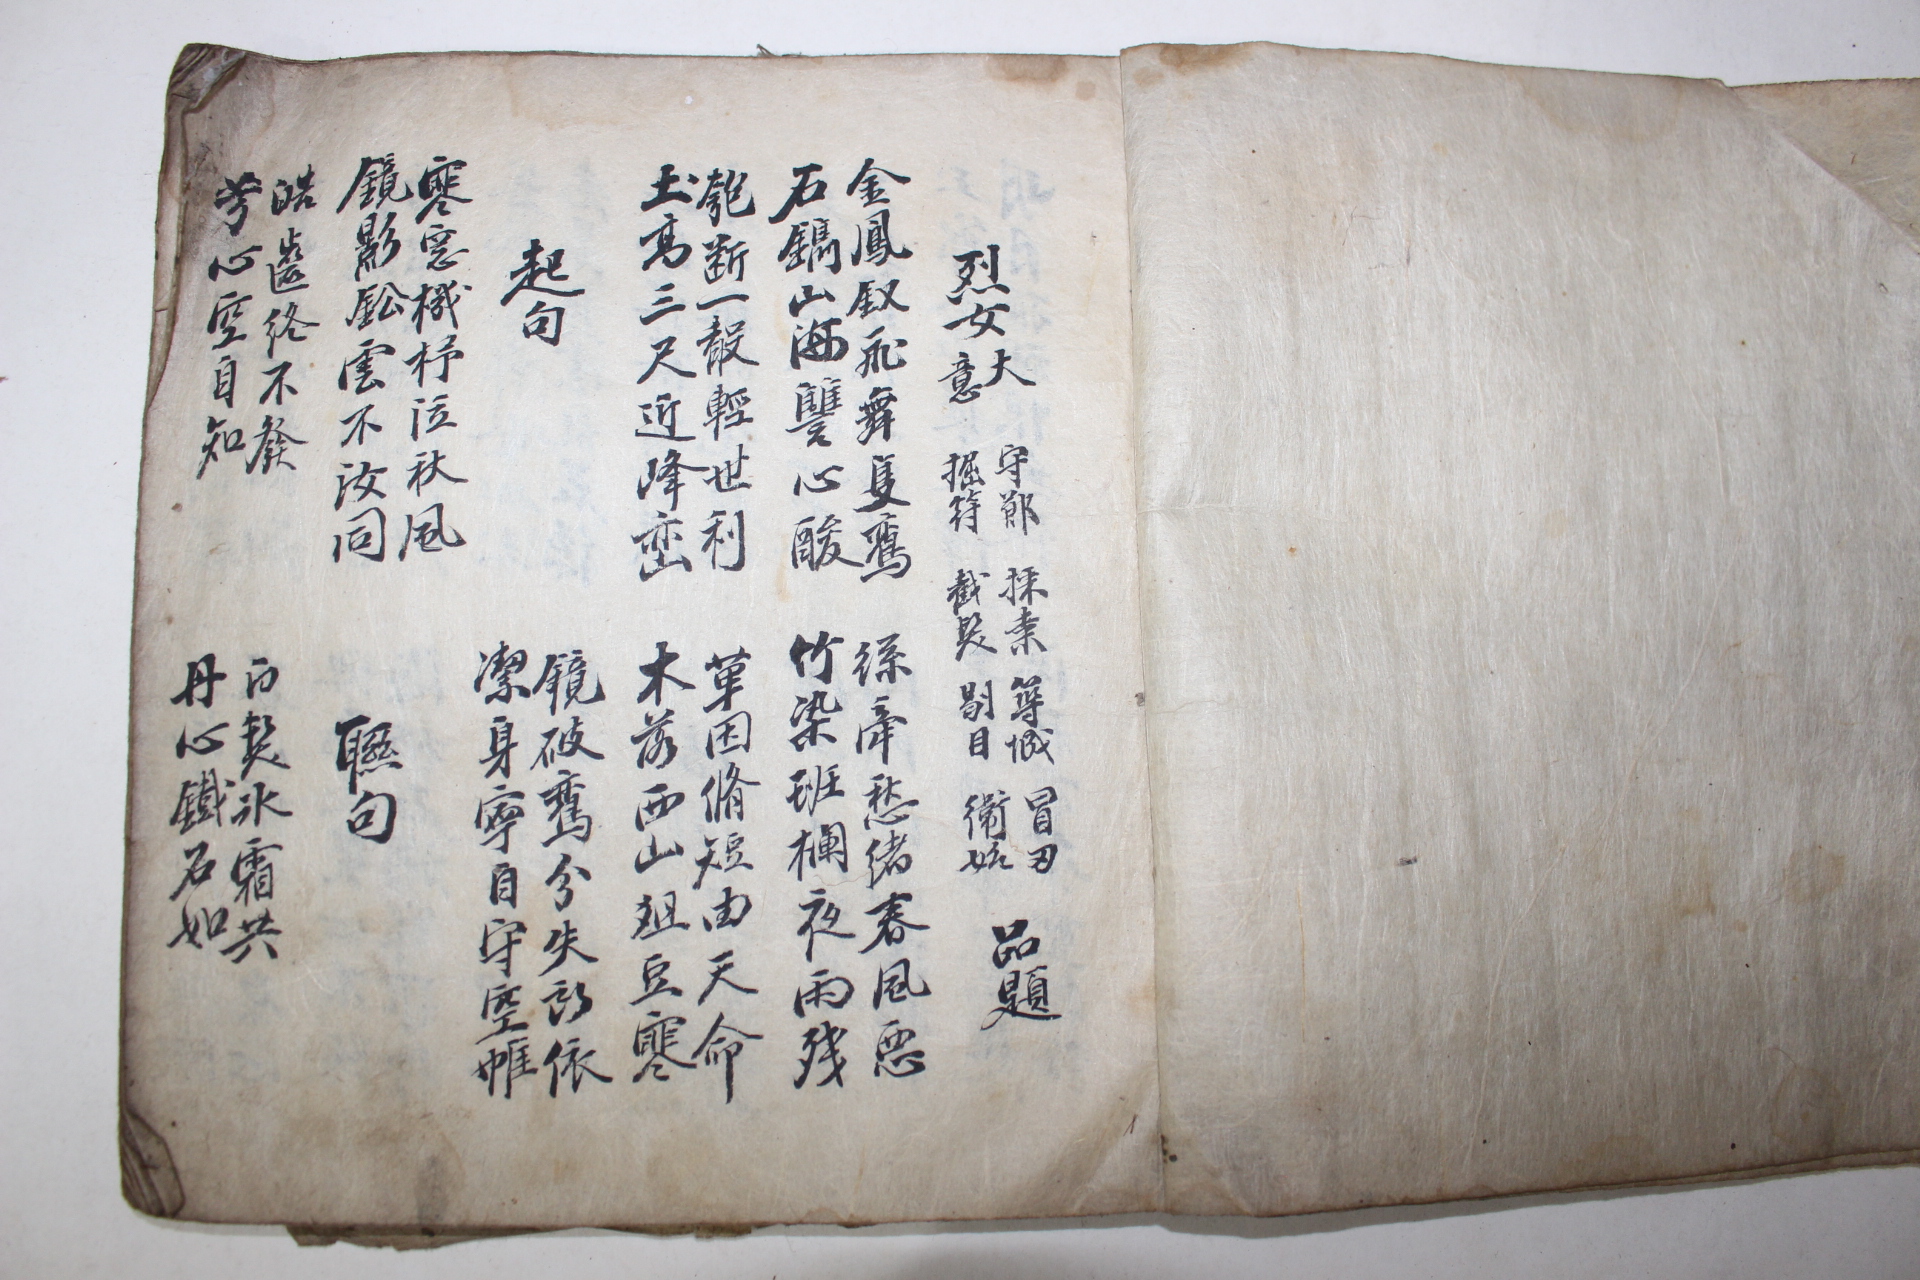 烈女 大意 守鄭 採桑 等城 冒刃 品題
掘符 截髮 剔目 衛姑
金鳳釵飛舞隻鸞 絲牽愁緒春風惡
石鐫山海讐心酸 竹染班欄夜雨殘
匏斷一聲輕世利 草因脩短由天命
土高三尺近峰巒 木落西山俎豆寒
起句
鏡破鸞分失所依
潔身寧自守空帷
寒窓機杼泣秋風
鏡影釵雲不汝同
聯句
皓齒終不發 白髮氷霜共
芳心空自知 丹心鐵石如